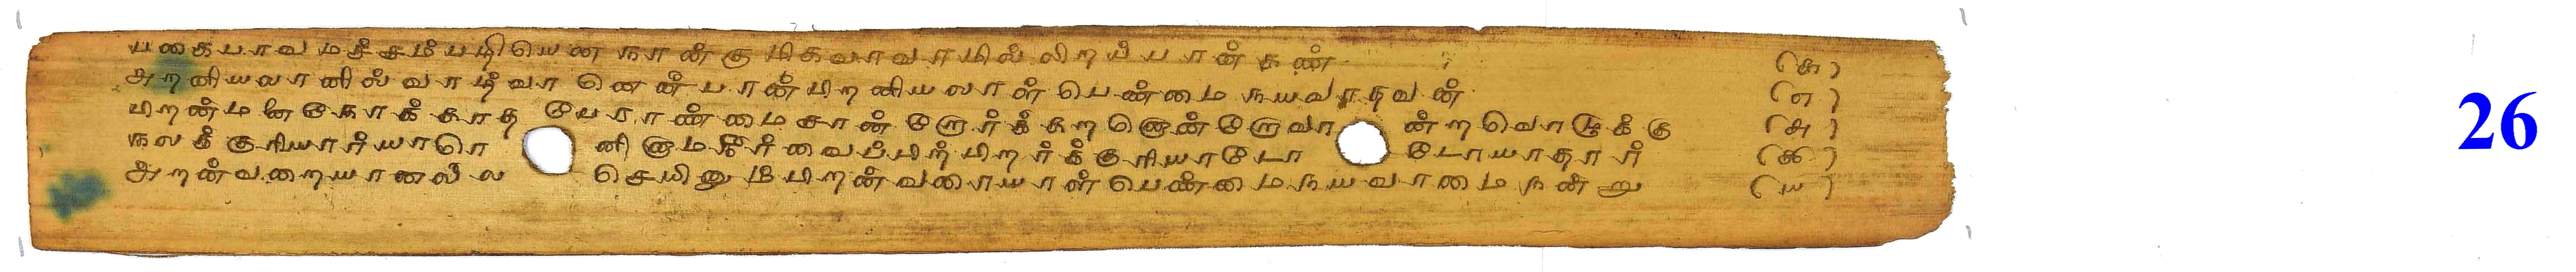 பகைபாவ மச்சம் பழியென நான்கு மிகவாவாமில் லிறப்பான்கண் (௬)
அறனியலானில் வாழ்வா னென்பான் பிறனியலாள் பெண்மை நயவாதவன் (௭)
பிறன்மனை நோக்காத பேராண்மை சான்றோர்க் கறனொன்றோவா ன்றவொழுக்கு (௮)
நலக்குரியார்யாரெ னினாமநீர் வைப்பிற் பிறர்க்குரியாடோ டோயாதார் (௯)
அறன்வறையானல்ல செயினும் பிறன்வரையாள் பெண்மைநயவாமை நன்று (௰)
26